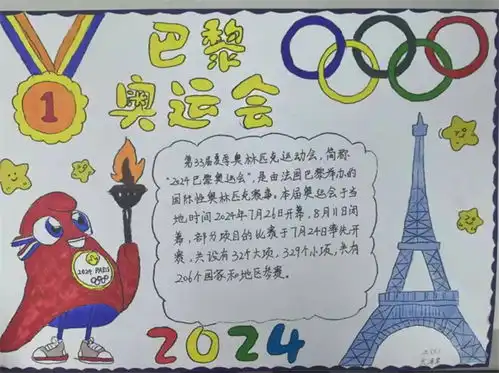 巴黎
奥运会
1
第33届夏季奥林匹克运动会，简称
"2024巴黎奥运会"，是由法国巴黎举办的
国际性奥林匹克赛事。本届奥运会于当
地时间2024年7月26日开幕，8月11日闭
幕，部分项目的比赛于7月24日率先开
赛，共设有32个大项，329个小项，共有
206个国家和地区参赛。
2024 PARIS
2024